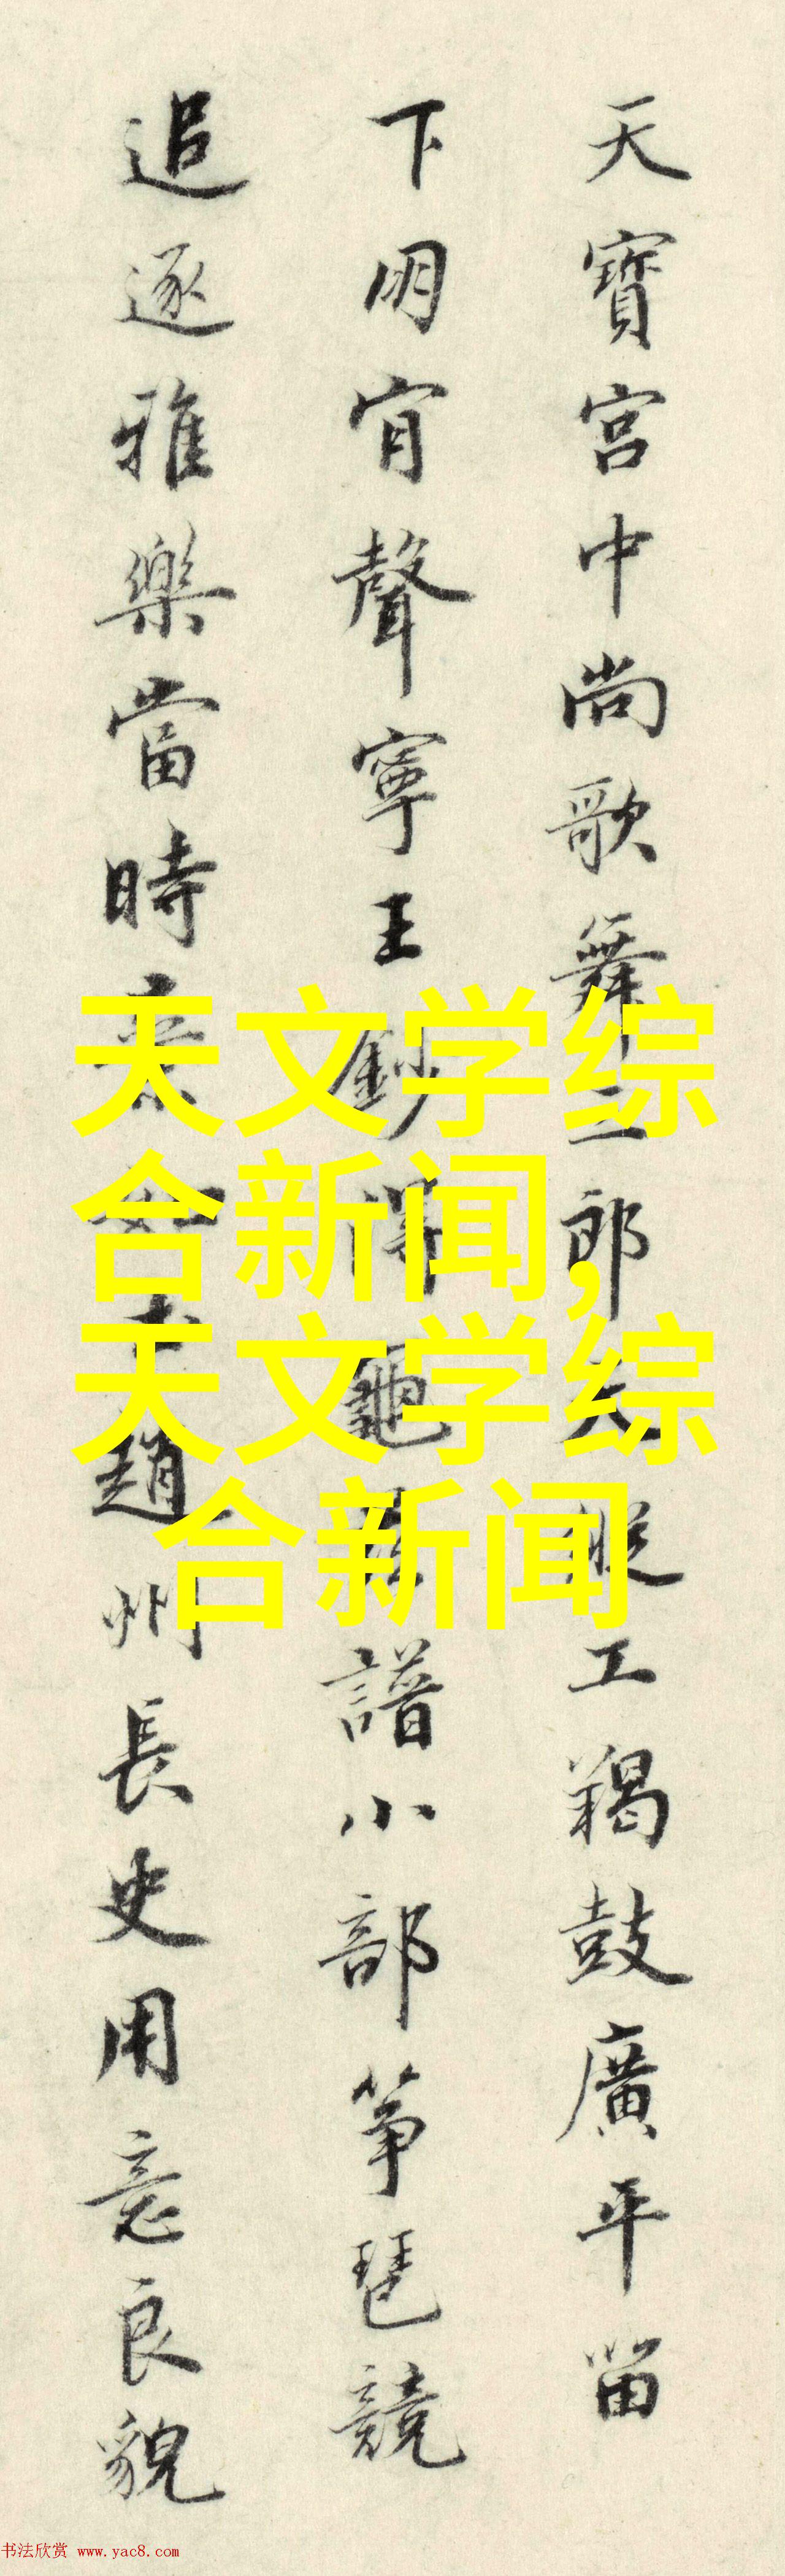 天寶宮中尚歌舞二郎天縱工羯鼓廣平留
下朋肎聲寧王鈔得龜茲譜小部箏琶競
追逐雅樂當時趙州長史用意良貌
天文学综
合新闻,
天文学综
合新闻
书法欣赏 www.yac8.com